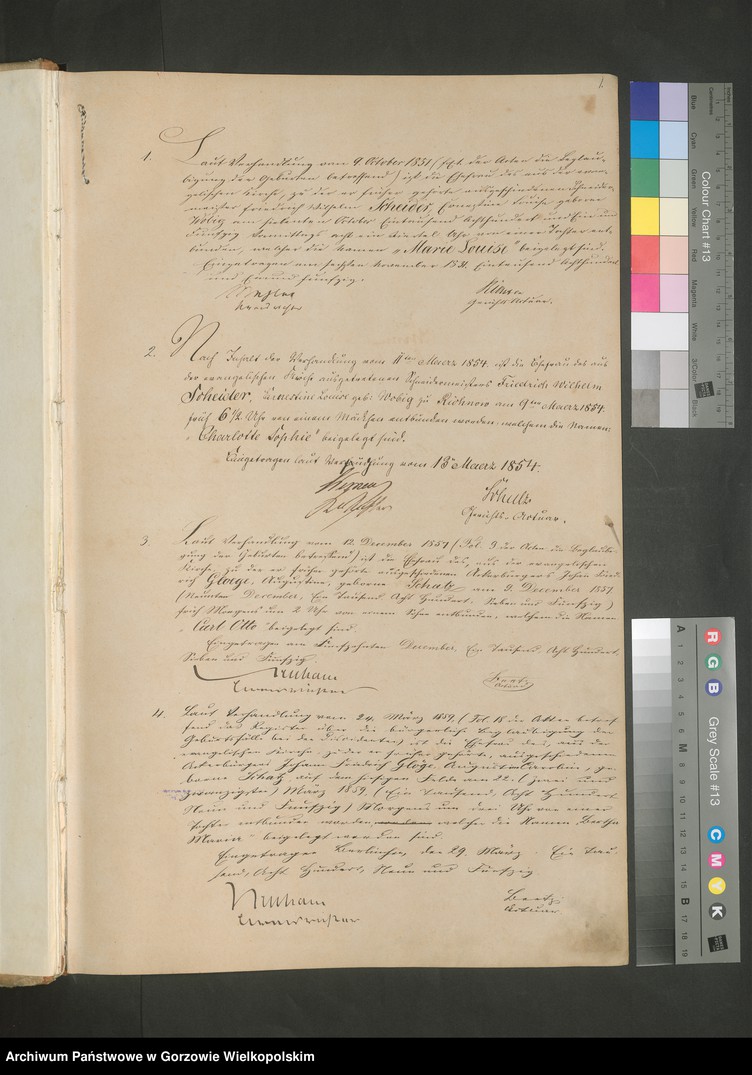 1.
1. Laut Verhandlung vom 9. October 1851 (Fol. 1. der Acten die Beglau-
bigung der Geburten betreffend) ist die Ehefrau des aus der evan-
gelischen Kirche, zu der er früher gehörte ausgeschiedenen Schneider-
meister Friedrich Wilhelm Scheider, Ernestine Louise geborne
Wobig am siebenten October Eintausend Achthundert und Ein und
Funfzig Vormittags acht ein viertel Uhr von einer Tochter ent-
bunden, welcher die Namen "Marie Louise" beigelegt sind.
Eingetragen am sechsten November 1851. Eintausend Achthundert
und Ein und funfzig.
Gerichts Actuar.
2. Nach Inhalt der Verhandlung vom 11ten Maerz 1854. ist die Ehefrau des aus
der evangelischen Kirche ausgetretenen Schneidermeisters Friedrich Wilhelm
Scheider, Ernestine Louise geb: Wobig zu Richnow am 9ten Maerz 1854.
früh 6 1/2 Uhr von einem Mädchen entbunden worden, welchem die Namen:
"Charlotte Sophie" beigelegt sind.
Eingetragen laut Verfügung vom 13ten Maerz 1854.
Schulz
Gerichts-Actuar.
3. Laut Verhandlung vom 12. December 1857 (Fol. 9 der Acten die Beglaubi-
gung der Geburten betreffend) ist die Ehefrau des, aus der evangelischen
Kirche, zu der er früher gehörte ausgeschiedenen Ackerbürgers Johann Fried-
rich Gloege, Augustine, geborne Schatz am 9. December 1857.
(Neunten December, Ein Tausend Acht Hundert, Sieben und Funfzig)
früh Morgens um 2 Uhr von einem Sohne entbunden, welchem die Namen
"Carl Otto" beigelegt sind.
Eingetragen am Funfzehnten December, Ein Tausend, Acht Hundert,
Sieben und Funfzig.
Neuham
Baatz
Actuar
4. Laut Verhandlung vom 24. März 1859, (Fol. 18 der Akten betref-
fend das Register über die bürgerliche Beglaubigung der
Geburtsfälle bei den Dissidenten) ist die Ehefrau des, aus der
evangelischen Kirche, zu der er früher gehört, ausgeschiedenen
Ackerbürgers Johann Friedrich Gloege, Auguste Caroline, ge-
borne Schatz auf dem hiesigen Felde am 22. (zwei und
zwanzigsten) März 1859, (Ein Tausend, Acht Hundert
Neun und Funfzig) Morgens um drei Uhr von einer
Tochter entbunden worden welcher die Namen "Bertha
Maria" beigelegt worden sind.
Eingetragen Berlinchen, den 29. März. Ein Tau-
send, Acht Hundert, Neun und Funfzig.
Neuham
Baatz
Actuar.
Colour Chart #13
Blue Cyan Green Yellow Red Magenta White 3/Color Black
Centimetres Inches
Grey Scale #13
R G B
C M Y K
A 1 2 3 4 5 6 M 8 9 10 11 12 13 14 15 B 17 18 19
Archiwum Państwowe w Gorzowie Wielkopolskim